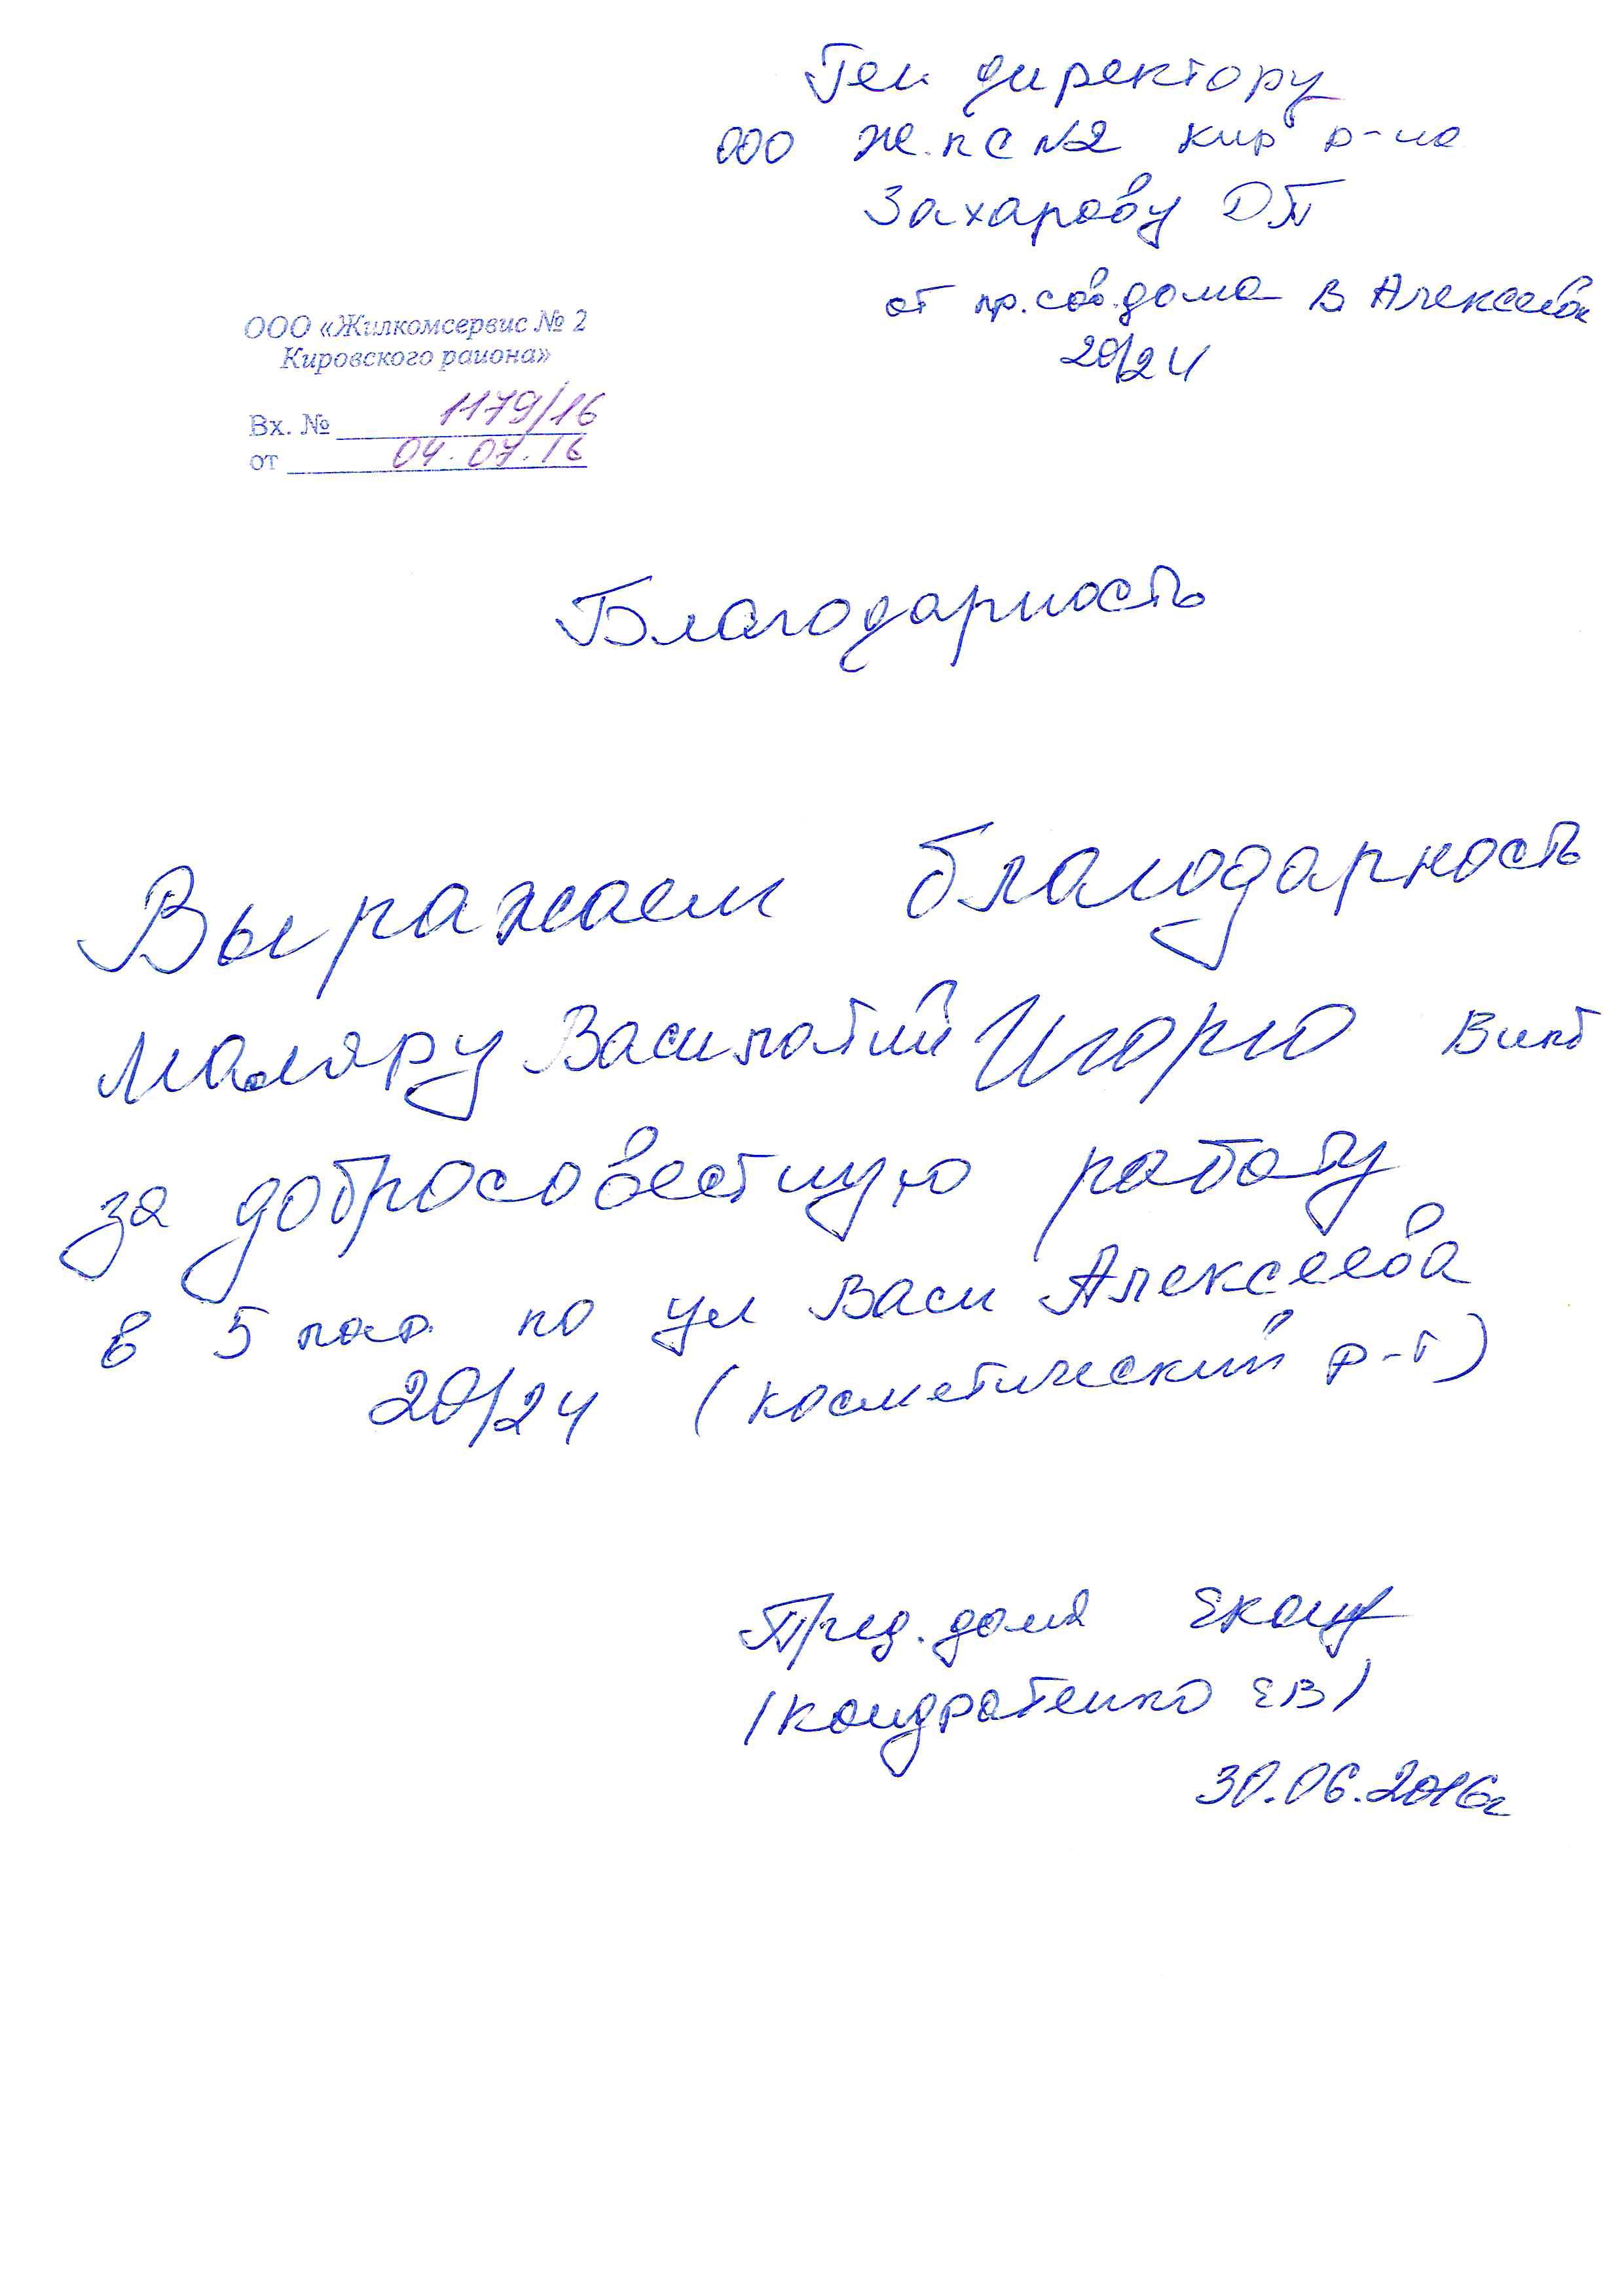 Ген директору
ООО ЖКС №2 Кир р-на
Захарову Д П
от пр. сов. дома В Алексеева
20/24
ООО «Жилкомсервис № 2
Кировского района»
Вх. № 1179/16
от 04.07.16
Благодарность
Выражаем благодарность
маляру Игорю Викт
за добросовестную работу
в 5 пар. по ул Васи Алексеева
20/24 (косметический р-т)
Пред. дома
(Кондратенко ЕВ)
30.06.2016г